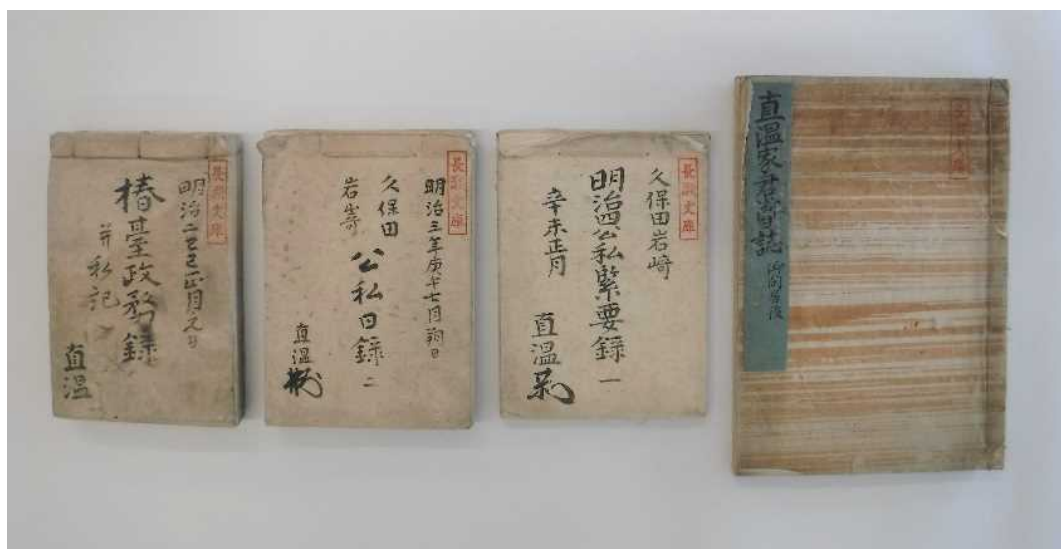 長瀬文庫
明治二己巳正月元日
椿臺政務録
并私記
直温
長瀬文庫
明治三年庚午七月朔日
久保田
岩嵜
公私日録 二
直温
長瀬文庫
久保田岩崎
明治四公私緊要録 一
辛未正月
直温
直温家君督日誌